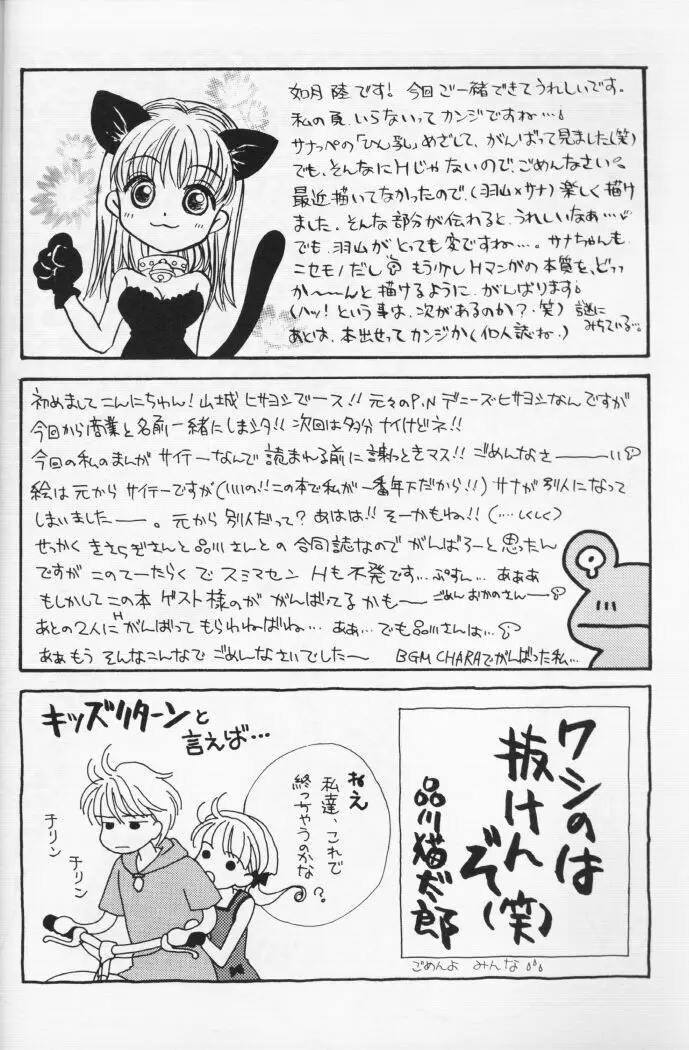 如月 陸です! 今回ご一緒できてうれしいです。
私の頁、いらないってカンジですね…!
サナッペの「ひん乳」めざして、がんばって見ました(笑)
でも、そんなにHじゃないので、ごめんなさい
最近描いてなかったので、(羽山×サナ)楽しく描け
ました。そんな部分が伝わると、うれしいなぁ…
でも、羽山がとっても変ですね…。サナちゃんも
ニセモノだし もう少しHマンガの本質を、どっ
か〜〜んと描けるように、がんばります
(ハッ! という事は、次があるのか?・笑) 謎に
みちている…。
あとは、本出せってカンジか(個人誌ね。)
初めまして こんにちゅん! 山城 ヒサヨシでース!! 元々のP.N デニーズヒサヨシなんですが
今回から商業と名前一緒にしまシタ!! 次回は多分 ナイけどネ!!
今回の私のまんが サイテーなんで 読まれる前に 謝っときマス!! ごめんなさ―――い
絵は元から サイテーですが(いいの!!この本で私が一番年下だから!!) サナが別人になって
しまいました――。元から 別人だって? あはは!! そーかもね!! (…しくしく)
せっかく きさらぎさんと品川さんとの 合同誌なので がんばろーと思ったん
ですが このてーたらくで スミマセン Hも不発です…ぷすん… あぁぁ
もしかして この本 ゲスト様のが がんばってるかも〜 ごめん おかのさん―
あとの2人に H がんばって もらわねばね… あぁ…でも品川さんは…
あぁもう そんなこんなで ごめんなさいでした〜 BGM CHARAでがんばった私…
キッズリターンと
言えば…
ねえ
私達、これで
終っちゃうのかな
?。
チリン
チリン
ワシのは
抜けん
ぞ(笑)
品川猫太郎
ごめんよ みんな